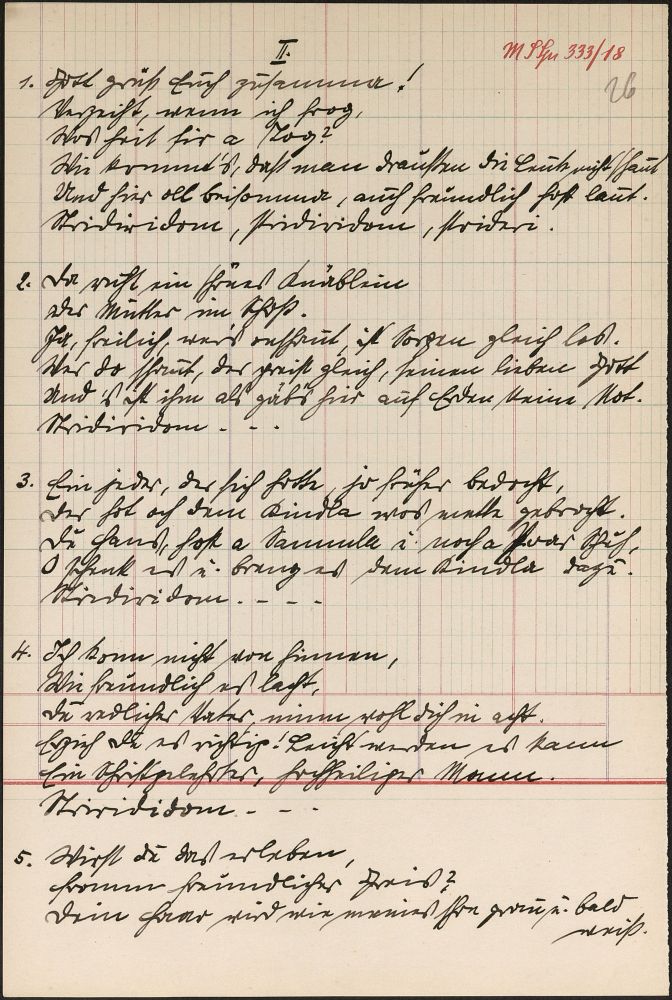 II.
MSSgn 333/18
26
1. Gott grüß Euch zusamma!
Verzeiht, wenn ich frog,
Wos heit fir a Tog?
Wie kommt's, daß man draußen die Leut nicht schaut
Und hier oll beisomma, auch freundlich hoft laut.
Stridiridom, stridiridom, strideri.
2. Da ruht ein schönes Knäblein
der Mutter im Schoß.
Ja, freilich, wer's onschaut, ist Sorgen gleich los.
Wer do schaut, der preist gleich, seinen lieben Gott
Und 's ist ihm als gäbs hier auf Erden keine Not.
Stridiridom - - -
3. Ein jeder, der sich hotte, jo früher bedocht,
Der hot och dem Kindla wos mette gebrocht.
Du Hans, host a Sammla u. noch a Poar Schuh,
O schenk es u. breng es dem Kindla dazu.
Stridiridom - - - -
4. Ich konn nicht von hinnen,
Wie freundlich es lacht,
Du redlicher Vater, nimm wohl dich in acht.
Erzieh du es richtig! Leicht werden es kann
Ein Schriftgelehrter, hochheiliger Monn.
StririDidom - - -
5. Wirst du das erleben,
fromm freundlicher Greis?
Dein Haar wird wie meines schon grau u. bald
weiß.